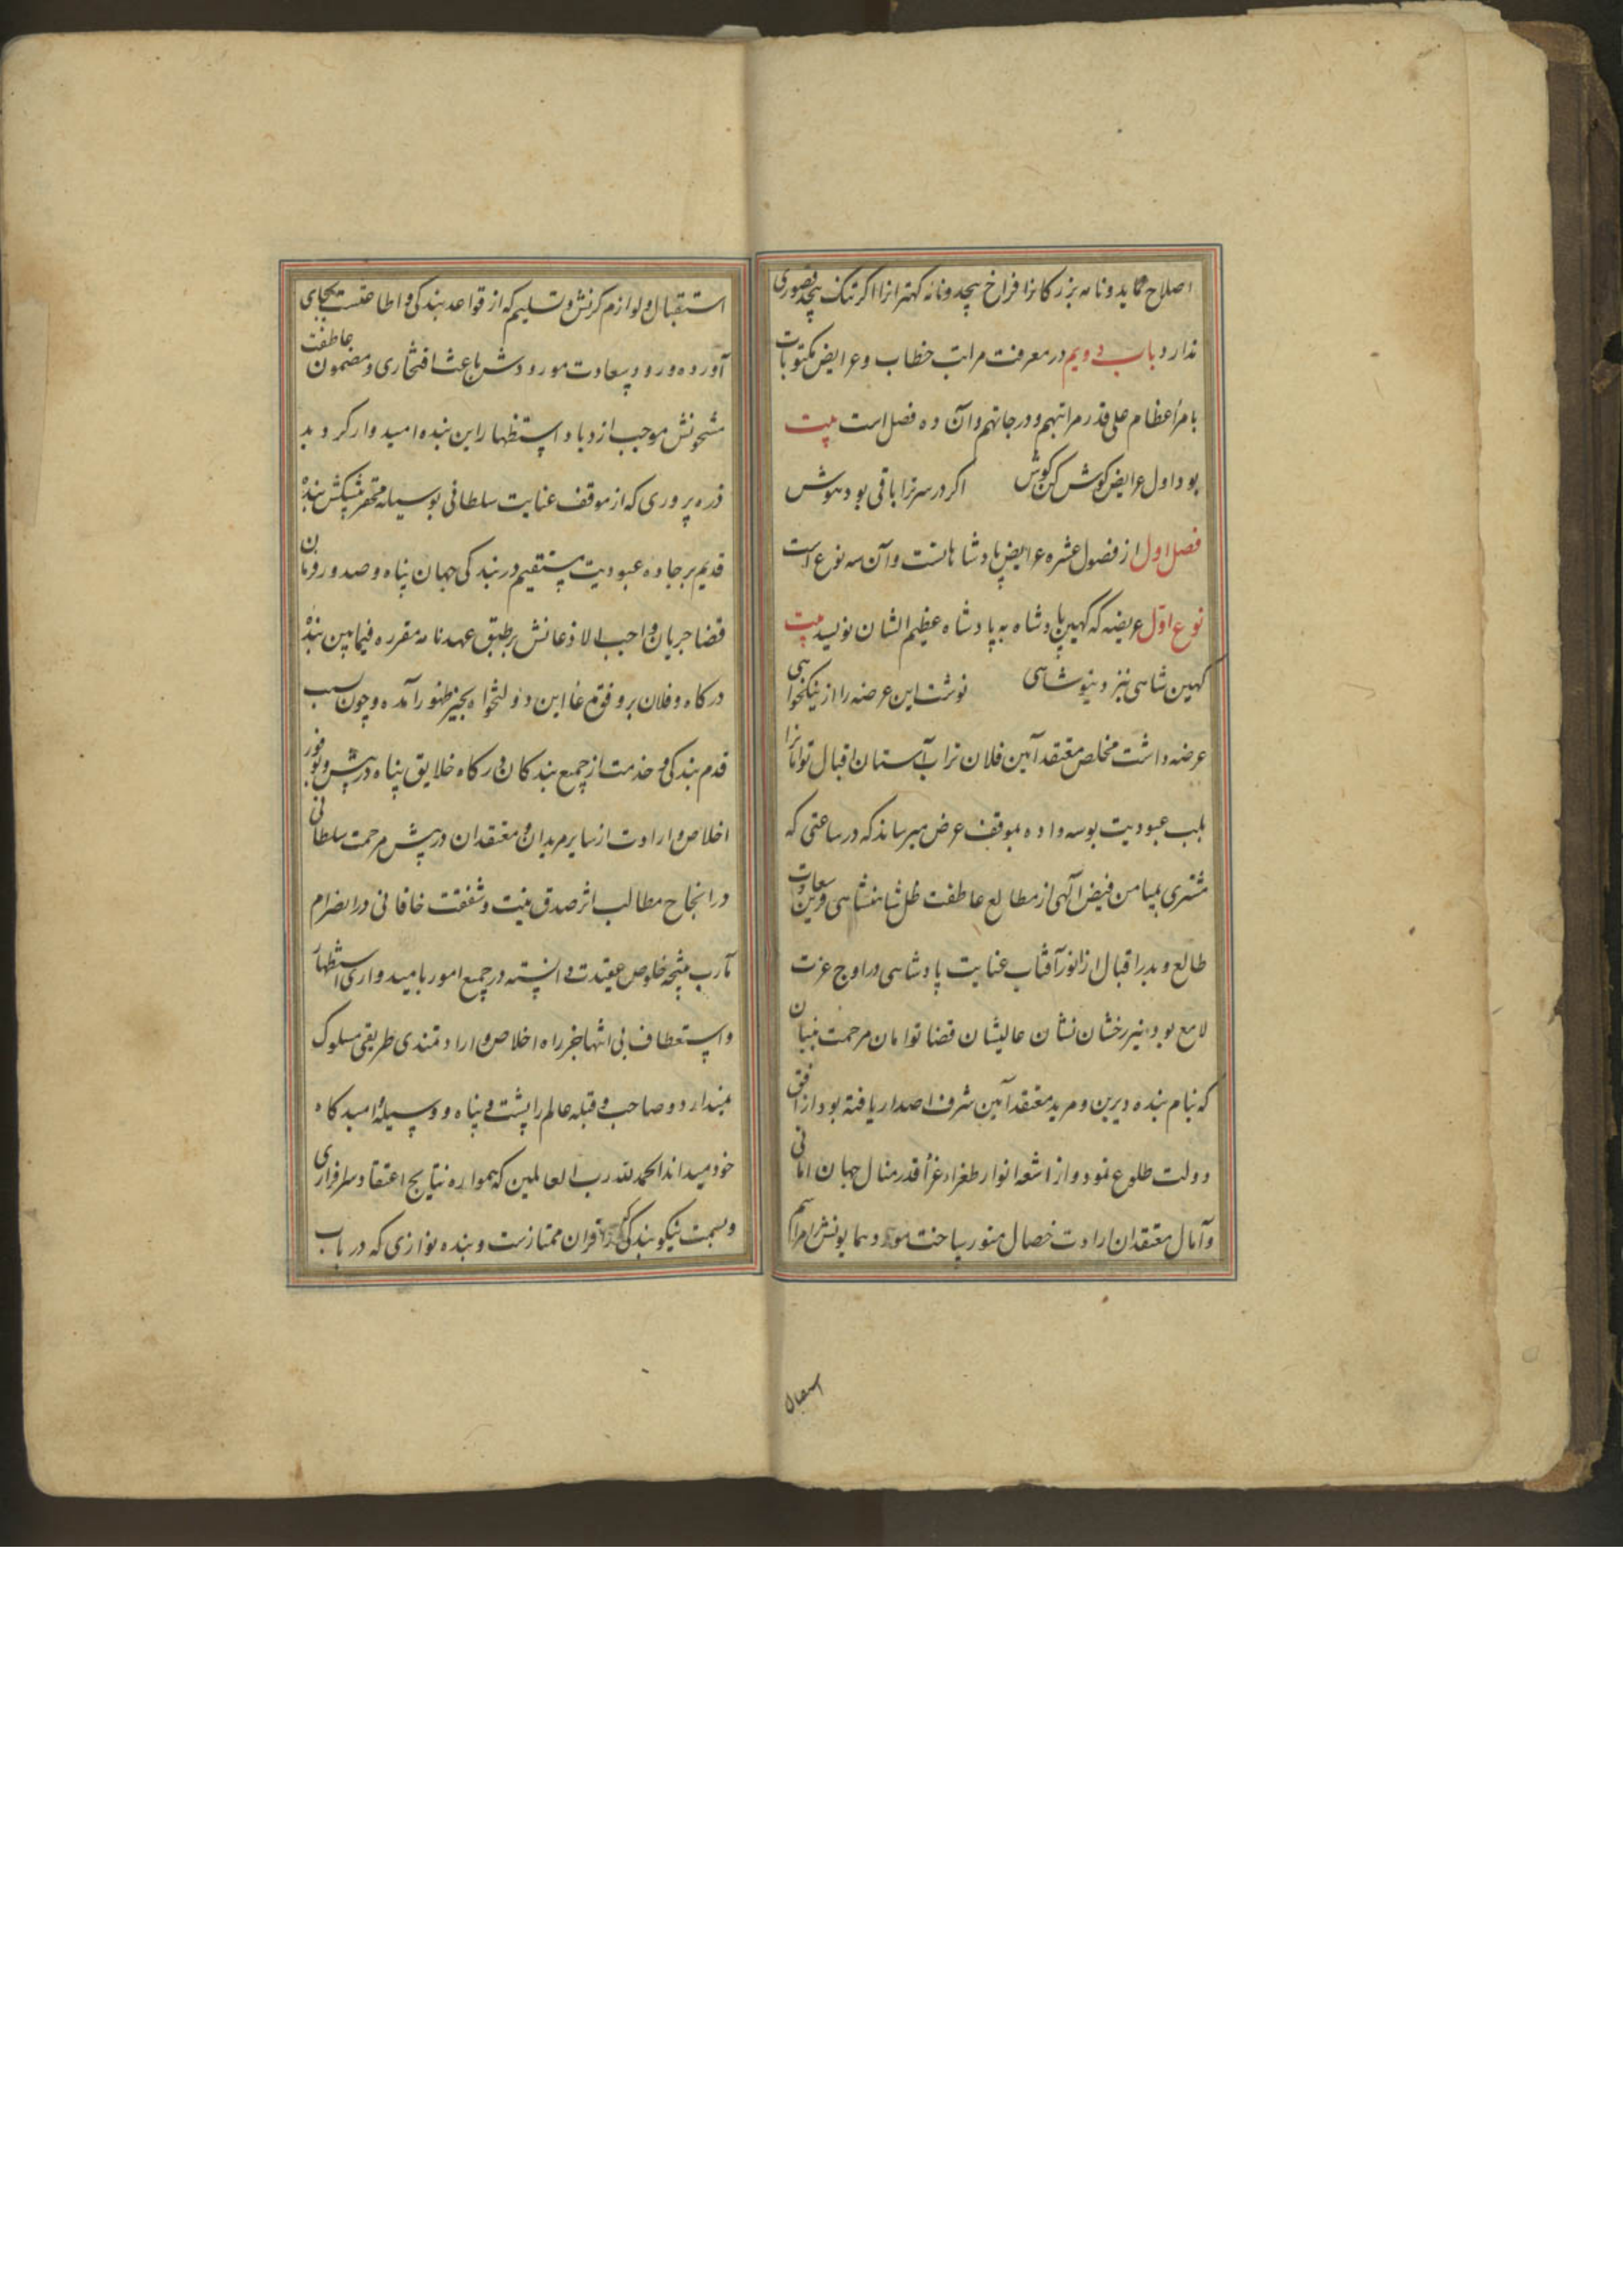 اصلاح نماید و نامه بزرکانرا فراخ پیچد و نامه کهترانرا اکر تنک پیچد قصوری
ندارد باب دویم در معرفت مراتب خطاب و عرایض مکتوبات
بامرأ عظام علی قدر مراتبهم و درجاتهم و آن ده فصل است بیت
بود اول عرایض کوش کن کوش اکر در سر ترا باقی بود هوش
فصل اول از فصول عشره عرایض پادشاهانست و آن سه نوع است
نوع اول عریضه که کهین پادشاه به پادشاه عظیم الشان نویسد بیت
کهین شاهی نبزد نوشت این عرضه را از نیکخواهی
عرضه داشت مخلص معتقد آیین فلان تراب آستان اقبال توامانرا
بلب عبودیت بوسه داده بموقف عرض میرساند که در ساعتی که
مشتری بمیامن فیض الهی از مطالع عاطفت ظل شاهنشاهی قرین سعادت
طالع و بدر اقبال از انور آفتاب عنایت پادشاهی در اوج عزت
لامع بود نیر رخشان نشان عالیشان قضا توامان مرحمت بنیان
که بنام بنده دیرین و مرید معتقد آیین شرف اصدار یافته بود از افق
دولت طلوع نمود و از اشعه انوار طغراء غرأ قدر منال جهان امانی
و آمال معتقدان ارادت خصال منور ساخت مورد همایونش امراسم
استقبال
استقبال و لوازم کرنش و تسلیم که از قواعد بندکی و اطاعتست بجای
آورده ورود سعادت مورودش باعث افتخاری و مضمون عاطفت
مشحونش موجب ازدیاد استظهار این بنده امیدوار کردید
ذره پروری که از موقف عنایت سلطانی بوسیله محقر پیشکش بنده
قدیم بر جاده عبودیت مستقیم در بندکی جهان پناه و صدور فرمان
قضا جریان واجب الاذعانش بر طبق عهدنامه مقرره فیمابین بنده
درکاه و فلان بر وفق مدعا این دولتخواه بحیز ظهور آمده و چون سبب
قدم بندکی و خدمت از جمیع بندکان درکاه خلایق پناه در پیش و بوفور
اخلاص و ارادت از سایر مریدان و معتقدان در پیش مرحمت سلطانی
در انجاح مطالب اثر صدق نیت و شفقت خاقانی در انصرام
مآرب نتیجه خلوص عقیدت دانسته در جمیع امور بامیدواری استظهار
و استعطاف بی انتها بجز راه اخلاص و ارادتمندی طریقی مسلوک
نمیدارد و صاحب و قبله عالم را پشت و پناه و وسیله و امیدکاه
خود میداند الحمد لله رب العالمین که همواره نتایج اعتقاد سرافرازی
و بسمت نیکو بندکی اقران ممتازست و بنده نوازی که در باب